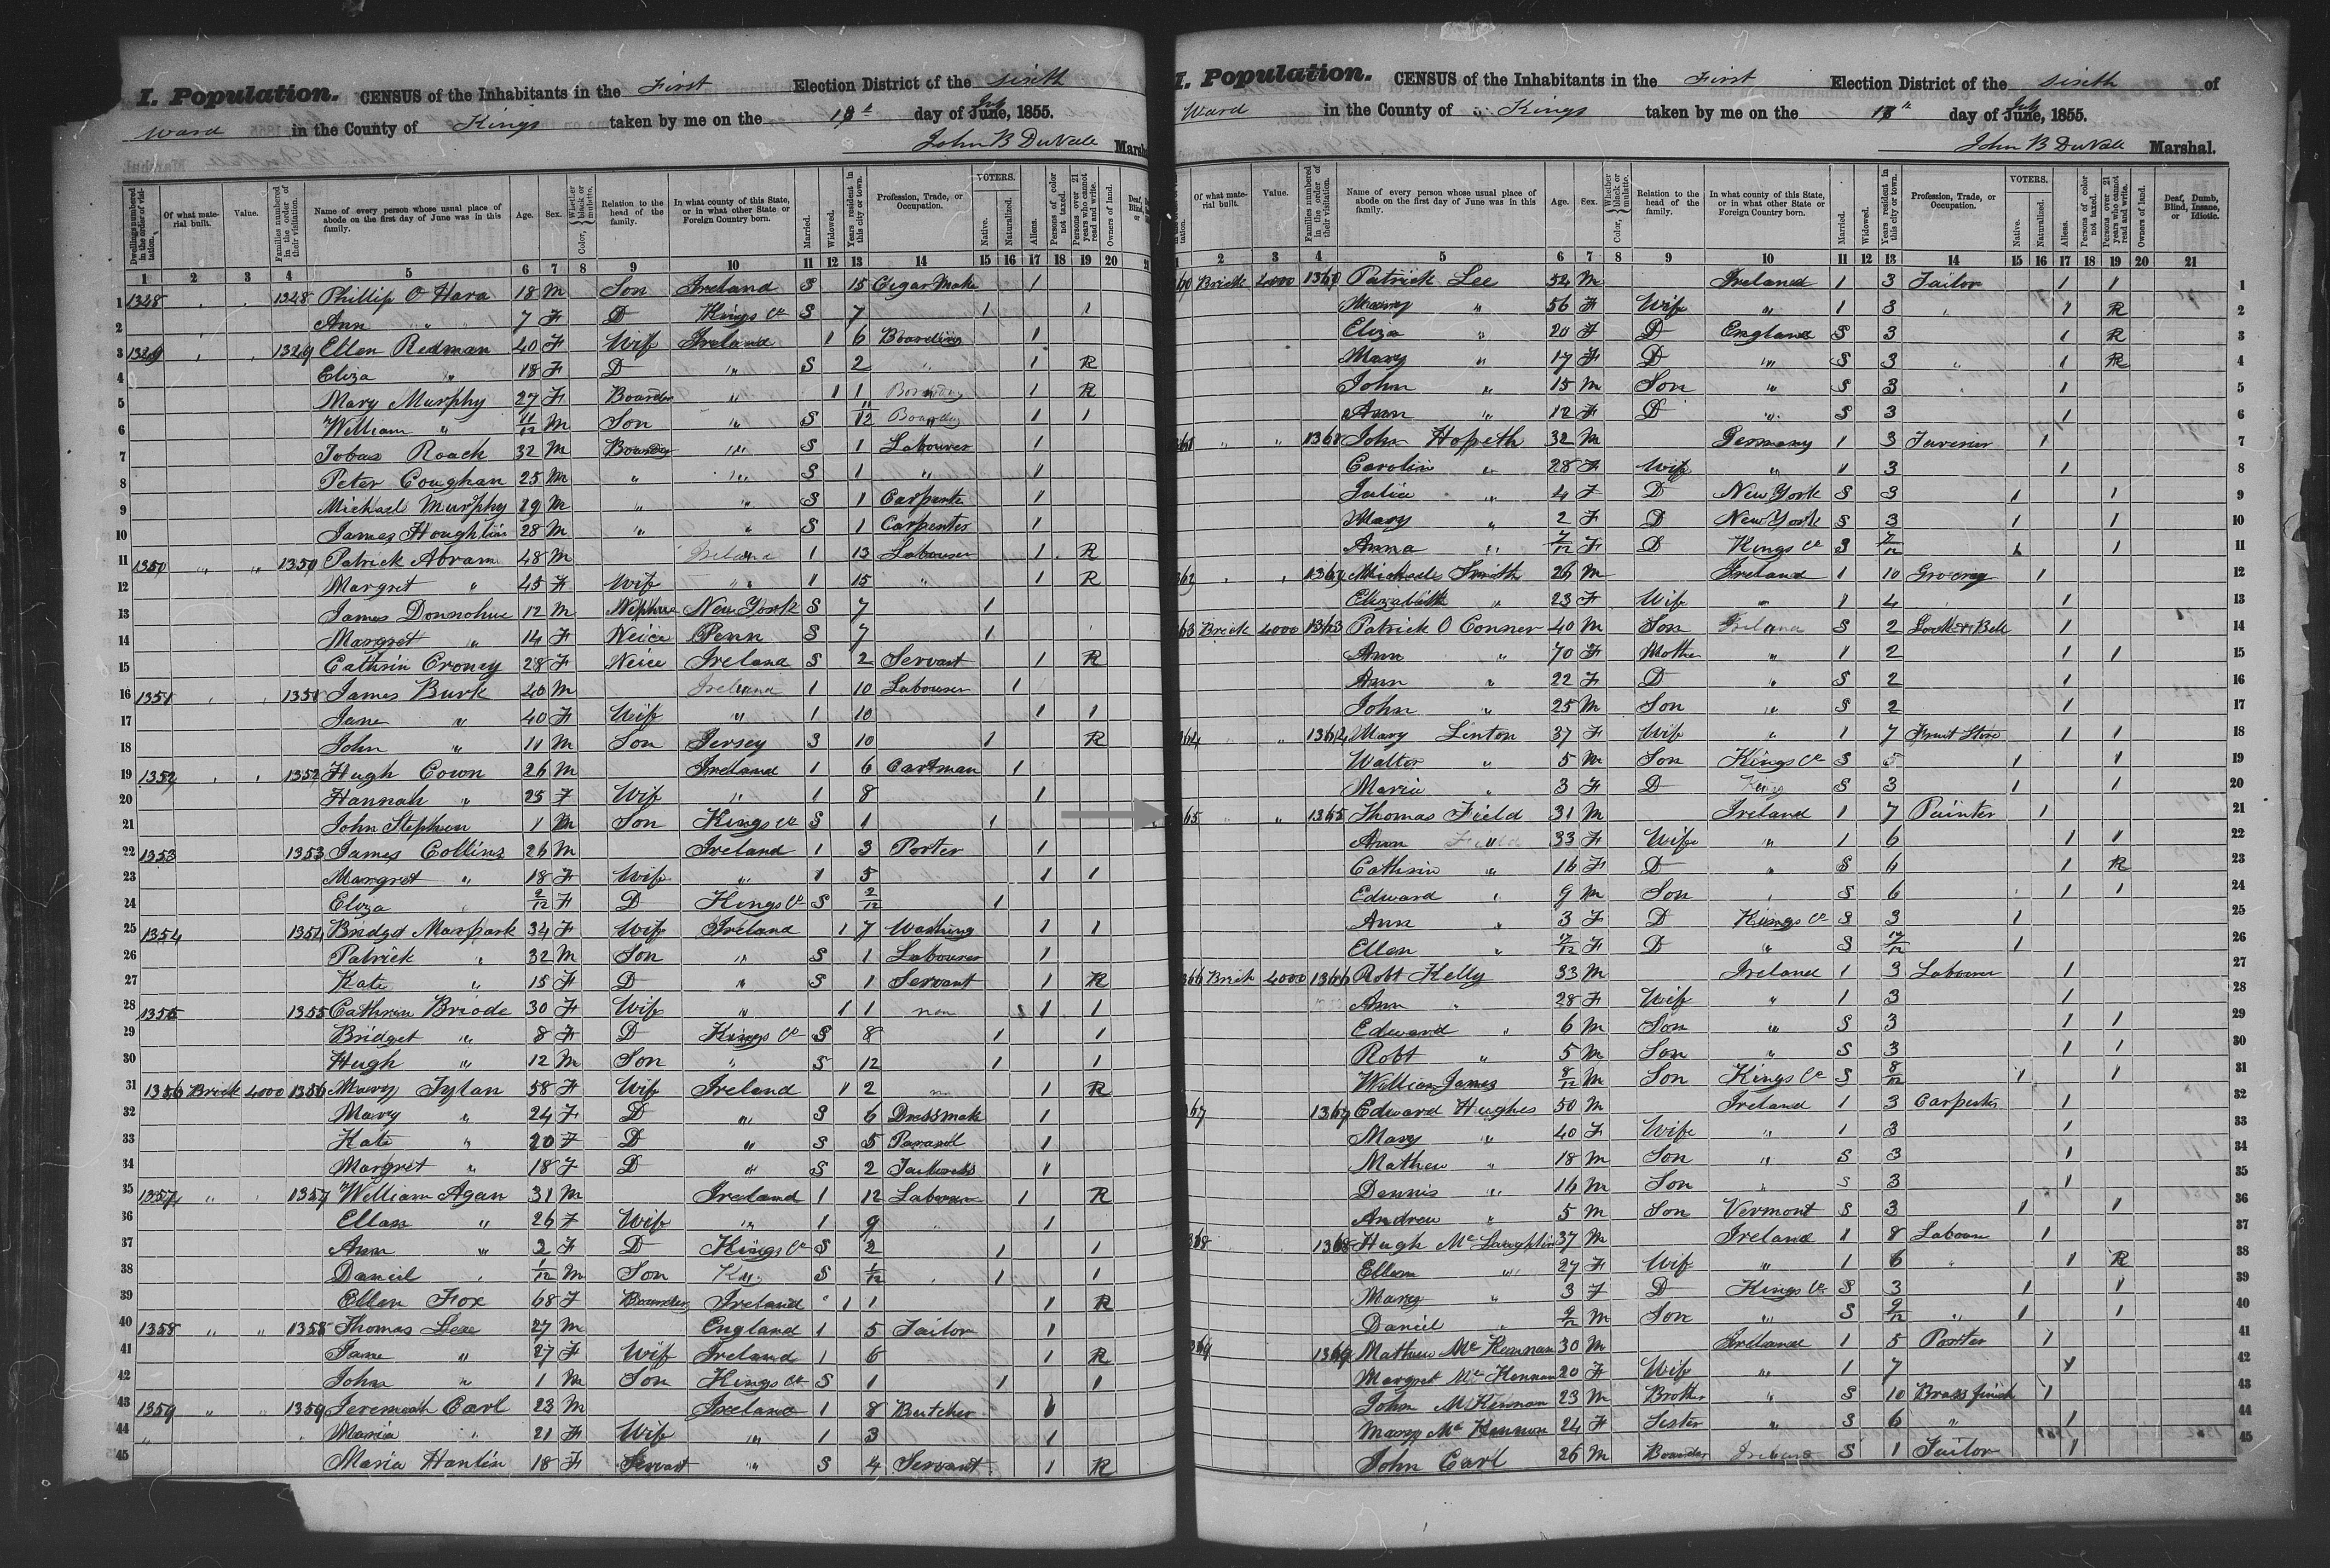 I. Population. CENSUS of the Inhabitants in the First Election District of the sixth
Ward in the County of Kings taken by me on the 18th day of June, July 1855.
John B DuVall Marshal
Dwellings numbered in the order of visitation. Of what material built. Value. Families numbered in the order of their visitation. Name of every person whose usual place of abode on the first day of June was in this family. Age. Sex. Color, Whether black or mulatto. Relation to the head of the family. In what county of this State, or in what other State or Foreign Country born. Married. Widowed. Years resident in this city or town. Profession, Trade, or Occupation. VOTERS. Native. Naturalized. Aliens. Persons of color not taxed. Persons over 21 years who cannot read and write. Owners of land. Deaf, Blind, or
1 2 3 4 5 6 7 8 9 10 11 12 13 14 15 16 17 18 19 20 21
1 1348 1348 Phillip O Hara 18 M Son Ireland S 15 Cigar Make 1
2 Ann " 7 F D Kings Co S 7 1 1
3 1349 1349 Ellen Redman 40 F Wife Ireland 1 6 Boarding 1
4 Eliza " 18 F D " S 2 " 1 R
5 Mary Murphy 27 F Boarder " 1 1 Boarding 1 R
6 William " 11/12 M Son " S 11/12 Boarding 1 1
7 Tobas Roach 32 M Boarding " S 1 Labourer 1
8 Peter Coughan 25 M " " S 1 " 1
9 Michael Murphy 29 M " " S 1 Carpente 1
10 James Houghlin 28 M " " S 1 Carpenter 1
11 1350 " " 1350 Patrick Abram 48 M Ireland 1 13 Labourer 1 R
12 Margret " 45 F Wife " 1 15 " 1 R
13 James Donnohue 12 M Nephew New York S 7 1
14 Margret " 14 F Neice Penn S 7 1
15 Cathrin Croney 28 F Neice Ireland S 2 Servant 1 R
16 1351 1351 James Burk 40 M Ireland 1 10 Labourer 1
17 Jane " 40 F Wife " 1 10 1 1
18 John " 11 M Son Jersey S 10 1 R
19 1352 1352 Hugh Cown 26 M Ireland 1 6 Cartman 1
20 Hannah " 25 F Wife " 1 8 1
21 John Stephen 1 M Son Kings Co S 1 1
22 1353 1353 James Collins 26 M Ireland 1 3 Porter 1
23 Margret " 18 F Wife " 1 5 1 1
24 Eliza 2/12 F D Kings Co S 2/12 1
25 1354 1354 Bridget Marpark 34 F Wife Ireland 1 7 Washing 1 1
26 Patrick " 32 M Son " S 1 Labourer 1
27 Kate " 15 F D " S 1 Servant 1 R
28 1355 1355 Cathrin Briode 30 F Wife " 1 1 non 1 1
29 Bridget " 8 F D Kings Co S 8 1 1
30 Hugh " 12 M Son " S 12 1 1
31 1356 Brick 4000 1356 Mary Tylan 58 F Wife Ireland 1 2 1 R
32 Mary " 24 F D " S 6 Dressmake 1
33 Kate " 20 F D " S 5 Parasol 1
34 Margret " 18 F D " S 2 Tailoress 1
35 1357 " 1357 William Agan 31 M Ireland 1 12 Labourer 1 R
36 Ellan " 26 F Wife " 1 9 1
37 Ann " 2 F D Kings Co S 2 1 1
38 Daneil 1/12 M Son S 1/12 1 1
39 Ellen Fox 68 F Boarder Ireland 1 1 1 R
40 1358 " " 1358 Thomas Lee 27 M England 1 5 Tailor 1
41 Jane " 27 F Wife Ireland 1 6 1 R
42 John " 1 M Son Kings Co S 1 1 1
43 1359 " " 1359 Jeremeah Carl 23 M Ireland 1 8 Butcher 1
44 Maria " 21 F Wife " 1 3 1
45 Maria Hanlin 18 F Servant " S 4 Servant 1 R
I. Population. CENSUS of the Inhabitants in the First Election District of the sixth of
Ward in the County of Kings taken by me on the 18th day of June, July 1855.
John B DuVall Marshal.
Of what material built. Value. Families numbered in the order of their visitation. Name of every person whose usual place of abode on the first day of June was in this family. Age. Sex. Color, Whether black or mulatto. Relation to the head of the family. In what county of this State, or in what other State or Foreign Country born. Married. Widowed. Years resident in this city or town. Profession, Trade, or Occupation. VOTERS. Native. Naturalized. Aliens. Persons of color not taxed. Persons over 21 years who cannot read and write. Owners of land. Deaf, Dumb, Blind, Insane, or Idiotic.
1 2 3 4 5 6 7 8 9 10 11 12 13 14 15 16 17 18 19 20 21
60 Brick 4000 1360 Patrick Lee 54 M Ireland 1 3 Tailor 1 1 1
Mary " 56 F Wife " 1 3 1 R 2
Eliza " 20 F D England S 3 1 R 3
Mary " 17 F D " S 3 1 R 4
John " 15 M Son " S 3 1 5
Ann " 12 F D " S 3 1 6
361 " " 1361 John Hopeth 32 M Germany 1 3 1 7
Carolin " 28 F Wife " 1 3 1 8
Julia " 4 F D New York S 3 1 1 9
Mary " 2 F D New York S 3 1 1 10
Anna " 7/12 F D Kings Co S 7/12 1 1 11
362 1362 Michael Smith 26 M Ireland 1 10 Grocery 1 12
Elizabeth " 23 F Wife " 1 4 1 13
63 Brick 4000 1363 Patrick O Conner 40 M Son Ireland S 2 1 14
Ann " 70 F Mother " 1 2 1 1 15
Ann " 22 F D " S 2 1 16
John " 25 M Son " S 2 1 17
364 " 1364 Mary Linton 37 F Wife " 1 7 Fruit Store 1 1 18
Walter " 5 M Son Kings Co S 5 1 1 19
Maria " 3 F D King S 3 1 1 20
65 " 1365 Thomas Field 31 M Ireland 1 7 Painter 1 21
Ann Field 33 F Wife " 1 6 1 1 22
Cathrin " 16 F D " S 6 1 R 23
Edward " 9 M Son " S 6 1 1 24
Ann " 3 F D Kings Co S 3 1 25
Ellen " 17/12 F D " S 17/12 1 26
366 Brick 4000 1366 Robt Kelly 33 M Ireland 1 3 Labourer 1 27
Ann " 28 F Wife " 1 3 1 28
Edward " 6 M Son " S 3 1 1 29
Robt " 5 M Son " S 3 1 1 30
William James 8/12 M Son Kings Co S 8/12 1 1 31
67 1367 Edward Hughes 50 M Ireland 1 3 Carpenter 1 32
Mary " 40 F Wife " 1 3 1 33
Mathew " 18 M Son " S 3 1 34
Dennis " 16 M Son " S 3 1 35
Andrew " 5 M Son Vermont S 3 1 1 36
368 1368 Hugh Mc Laughlin 37 M Ireland 1 8 Labour 1 37
Ellen " 27 F Wife " 1 6 " 1 R 38
Mary " 3 F D Kings Co S 3 1 1 39
Daneil " 9/12 M Son " S 9/12 " 1 1 40
369 1369 Mathew Mc Kennan 30 M Ireland 1 5 Porter 1 41
Margret Mc Kennan 20 F Wife " 1 7 1 42
John McKinnan 23 M Brother " S 10 Brass finish 1 43
Mary Mc Kennon 24 F Sister " S 6 " 1 44
John Carl 26 M Boarder Ireland S 1 Tailor 1 45